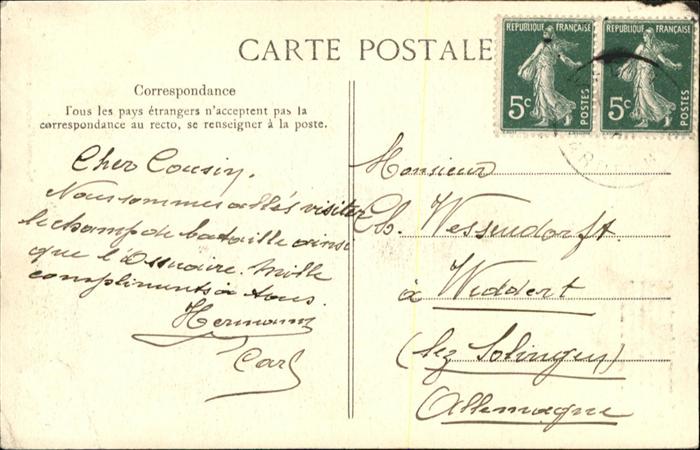 CARTE POSTALE
RÉPUBLIQUE FRANÇAISE
5c
POSTES
RÉPUBLIQUE FRANÇAISE
5c
POSTES
Correspondance
Tous les pays étrangers n'acceptent pas la
correspondance au recto, se renseigner à la poste.
Cher Cousin,
Nous sommes allés visiter
le champ de bataille ainsi
que l'Ossuaire. Mille
compliments à tous.
Hermann
Carl
Monsieur
Wessendorft
à Widdert
(bz Solingen)
Allemagne